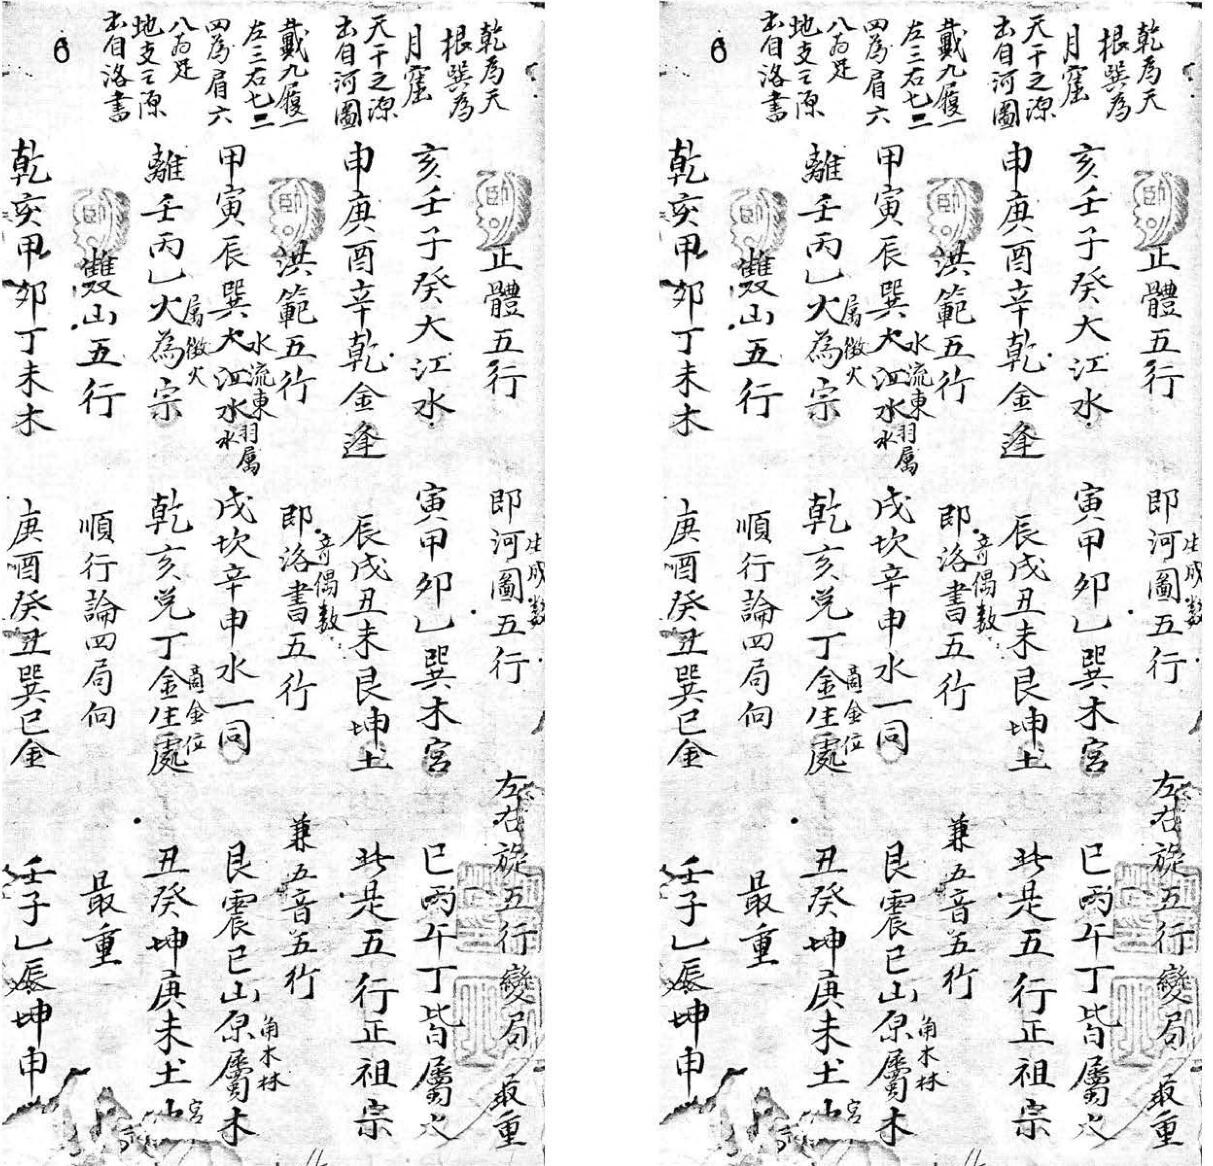 乾為天
根巽為
月窟
天干之源
出自河圖
戴九履一
左三右七二
四為肩六
八為足
地支之源
出自洛書
6
正體五行 即河圖五行 生成數 左右旋五行變局 最重
亥壬子癸大江水 寅甲卯乙巽木宮 巳丙午丁皆屬火
申庚酉辛乾金逢 辰戌丑未艮坤土 此是五行正祖宗
洪範五行 即洛書五行 奇偶數 兼五音五行
甲寅辰巽大江水 水流東羽屬水 戌坎辛申水一同 艮震巳山原屬木 角木林
離壬丙乙火為宗 屬徵火 乾亥兌丁金生處 商金位 丑癸坤庚未土山 宮
雙山五行 順行論四局向 最重
乾亥甲卯丁未木 庚酉癸丑巽巳金 壬子乙辰坤申
乾為天
根巽為
月窟
天干之源
出自河圖
戴九履一
左三右七二
四為肩六
八為足
地支之源
出自洛書
6
正體五行 即河圖五行 生成數 左右旋五行變局 最重
亥壬子癸大江水 寅甲卯乙巽木宮 巳丙午丁皆屬火
申庚酉辛乾金逢 辰戌丑未艮坤土 此是五行正祖宗
洪範五行 即洛書五行 奇偶數 兼五音五行
甲寅辰巽大江水 水流東羽屬水 戌坎辛申水一同 艮震巳山原屬木 角木林
離壬丙乙火為宗 屬徵火 乾亥兌丁金生處 商金位 丑癸坤庚未土山 宮
雙山五行 順行論四局向 最重
乾亥甲卯丁未木 庚酉癸丑巽巳金 壬子乙辰坤申